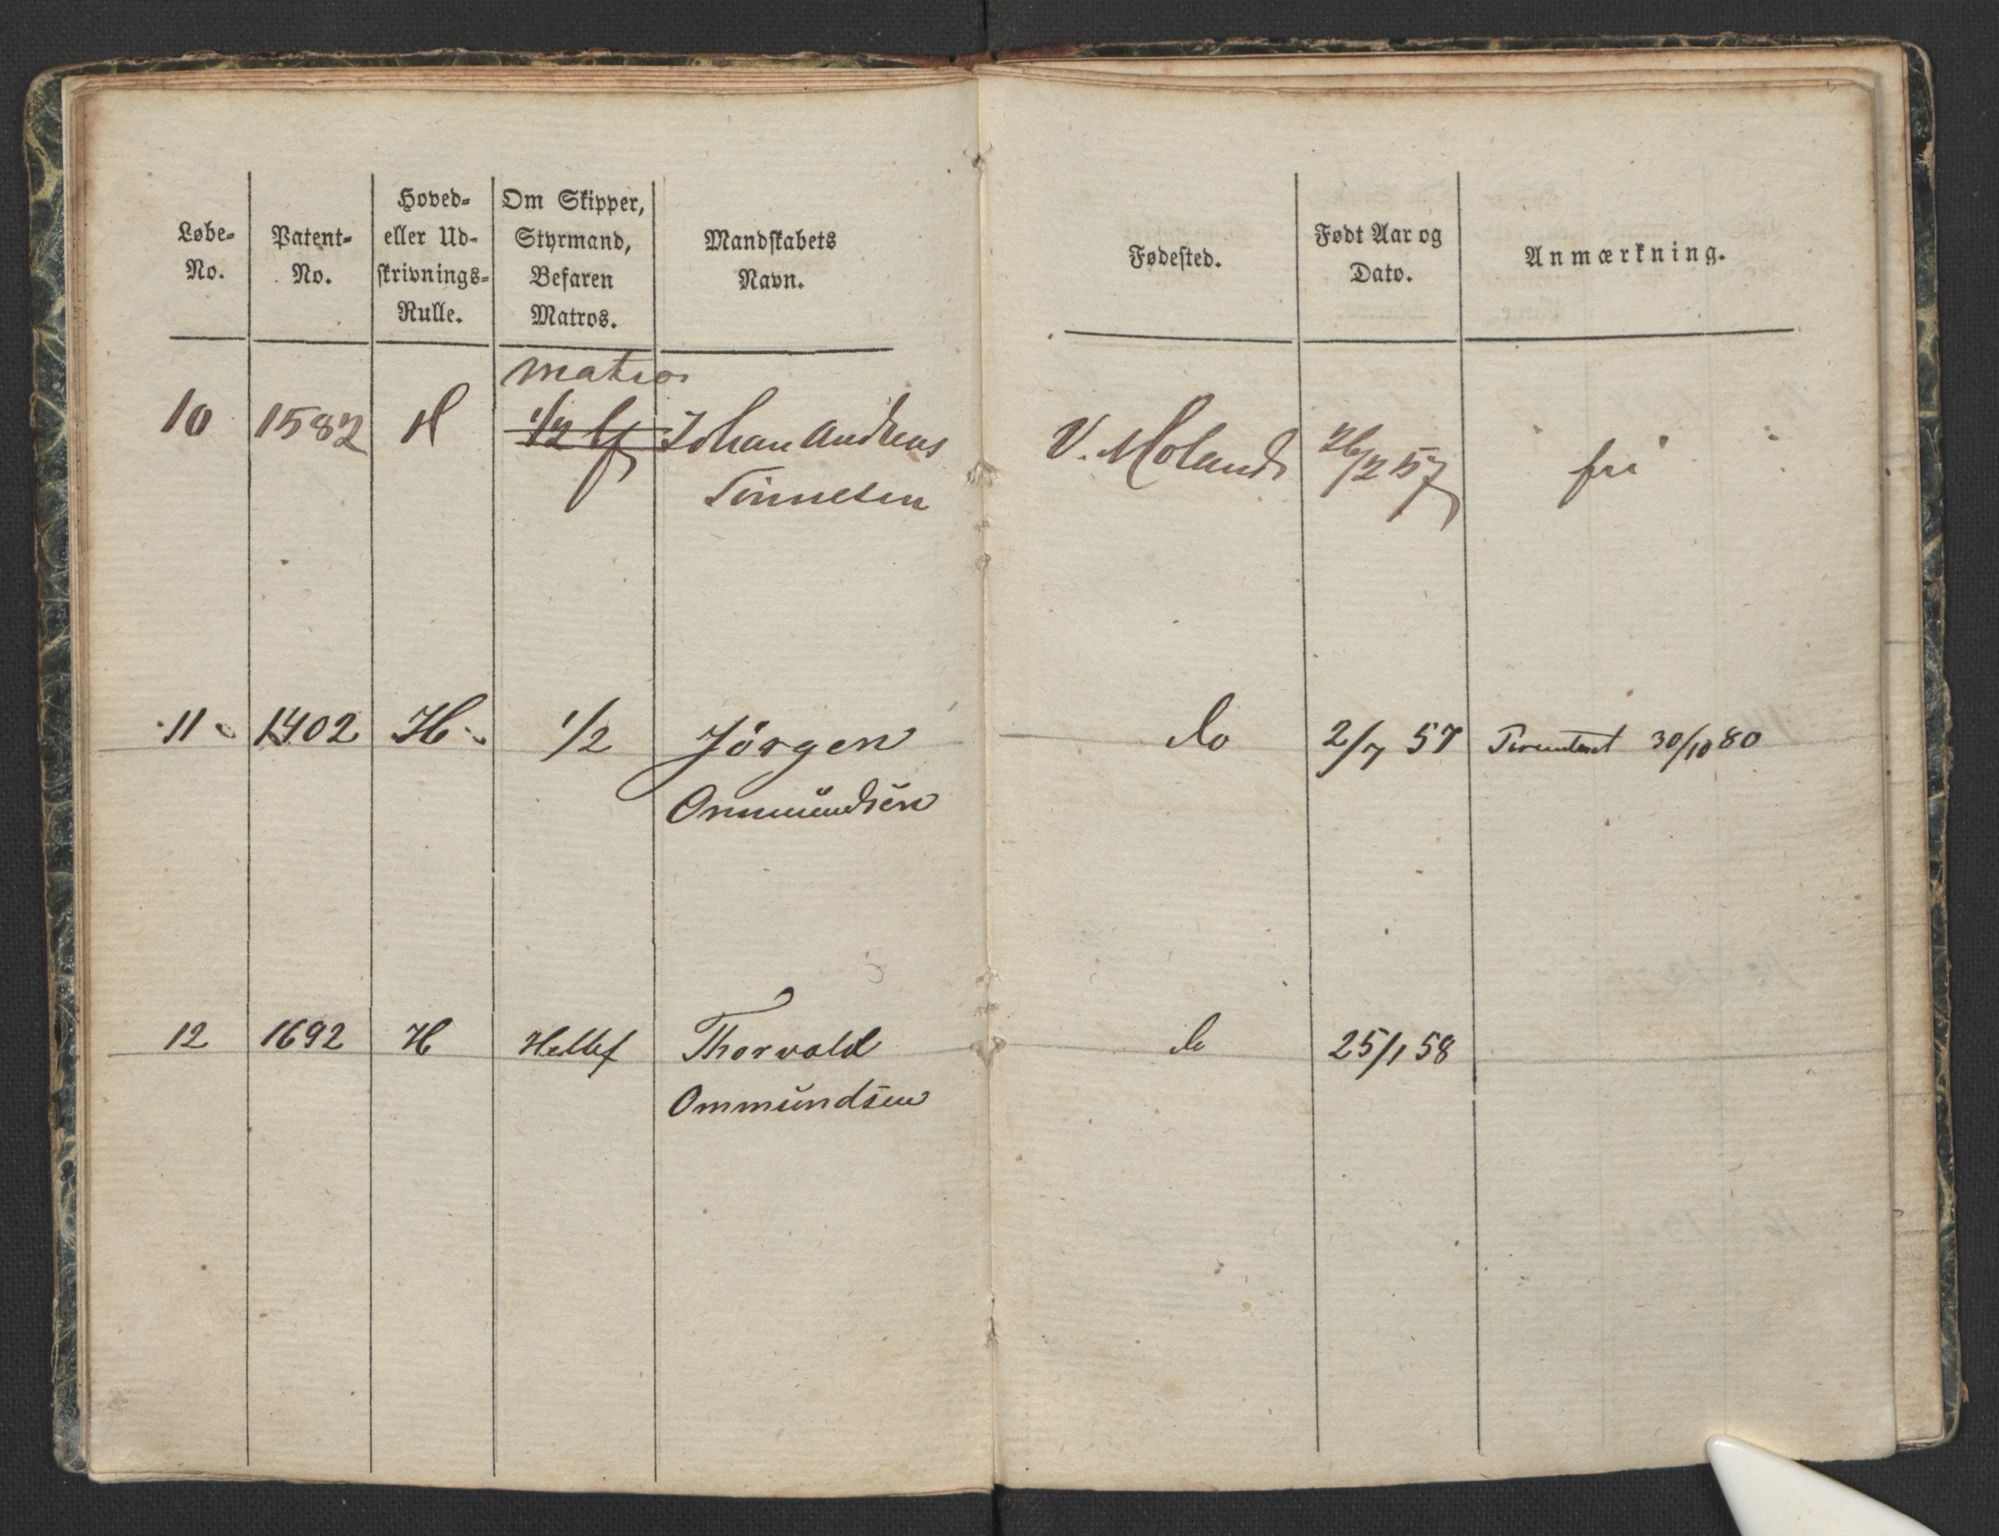 Løbe-No.
Patent-No.
Hoved- eller Ud-skrivnings-Rulle.
Om Skipper, Styrmand, Befaren Matros.
Mandskabets Navn.
Fødested.
Født Aar og Dato.
Anmærkning.
matros
10 1582 H 1/2 bf Johan Andreas V. Moland 26/2 57 fri
Tönnesen
11 1402 H 1/2 Jörgen do 2/7 57 30/10 80
Ommundsen
12 1692 H Helbf Thorvald do 25/1 58
Ommundsen